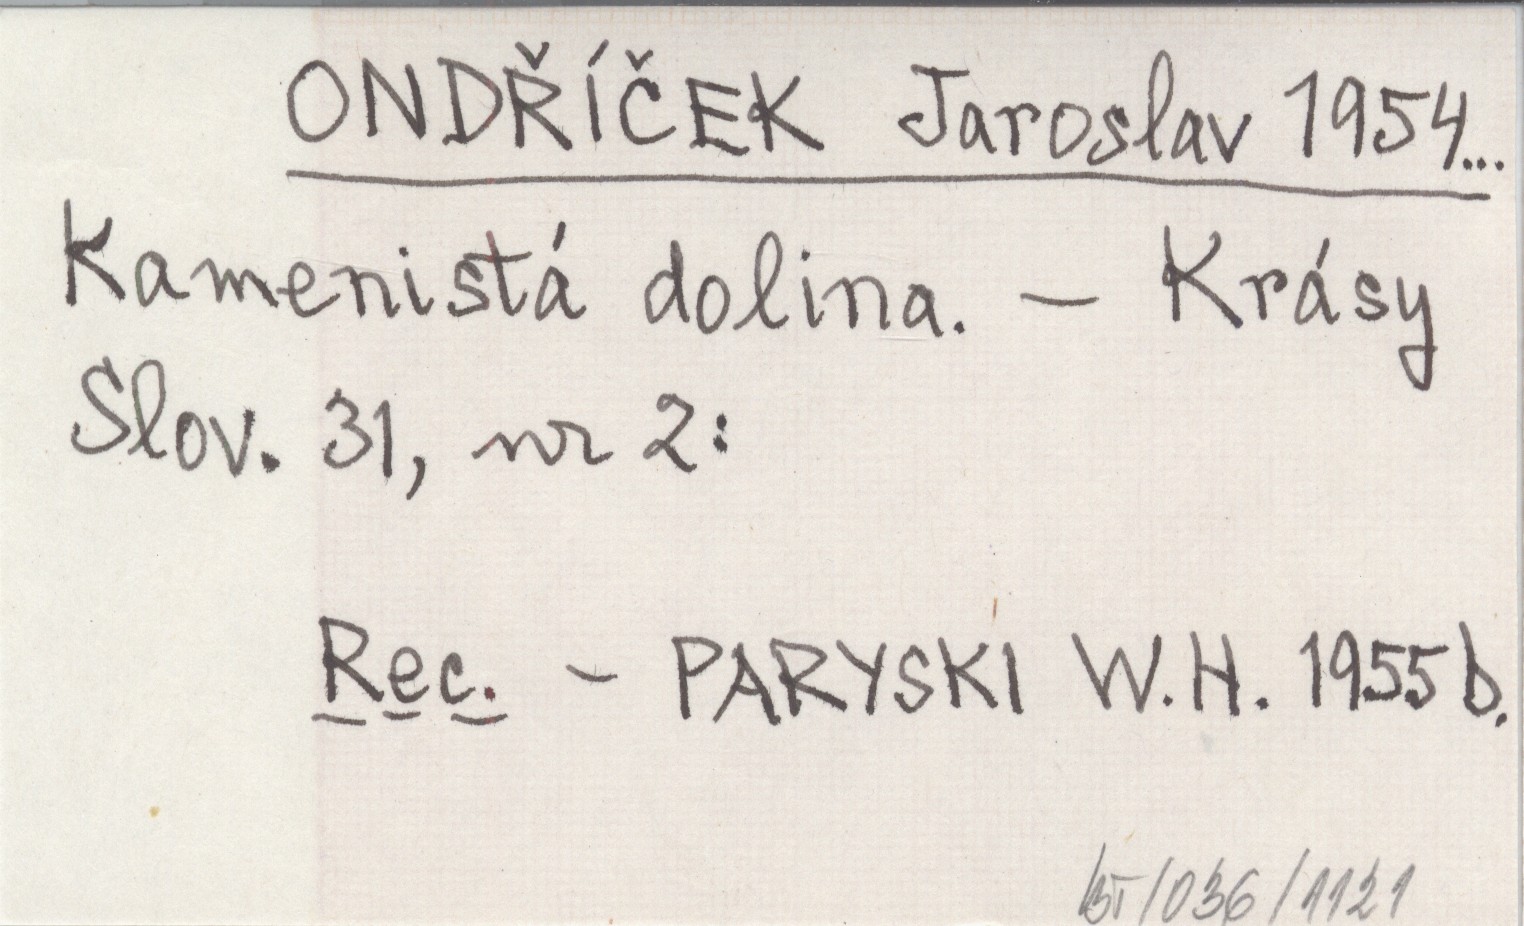 ONDŘÍČEK Jaroslav 1954...
Kamenistá dolina. – Krásy
Slov. 31, nr 2:
Rec. – PARYSKI W.H. 1955b.
BT/036/1121